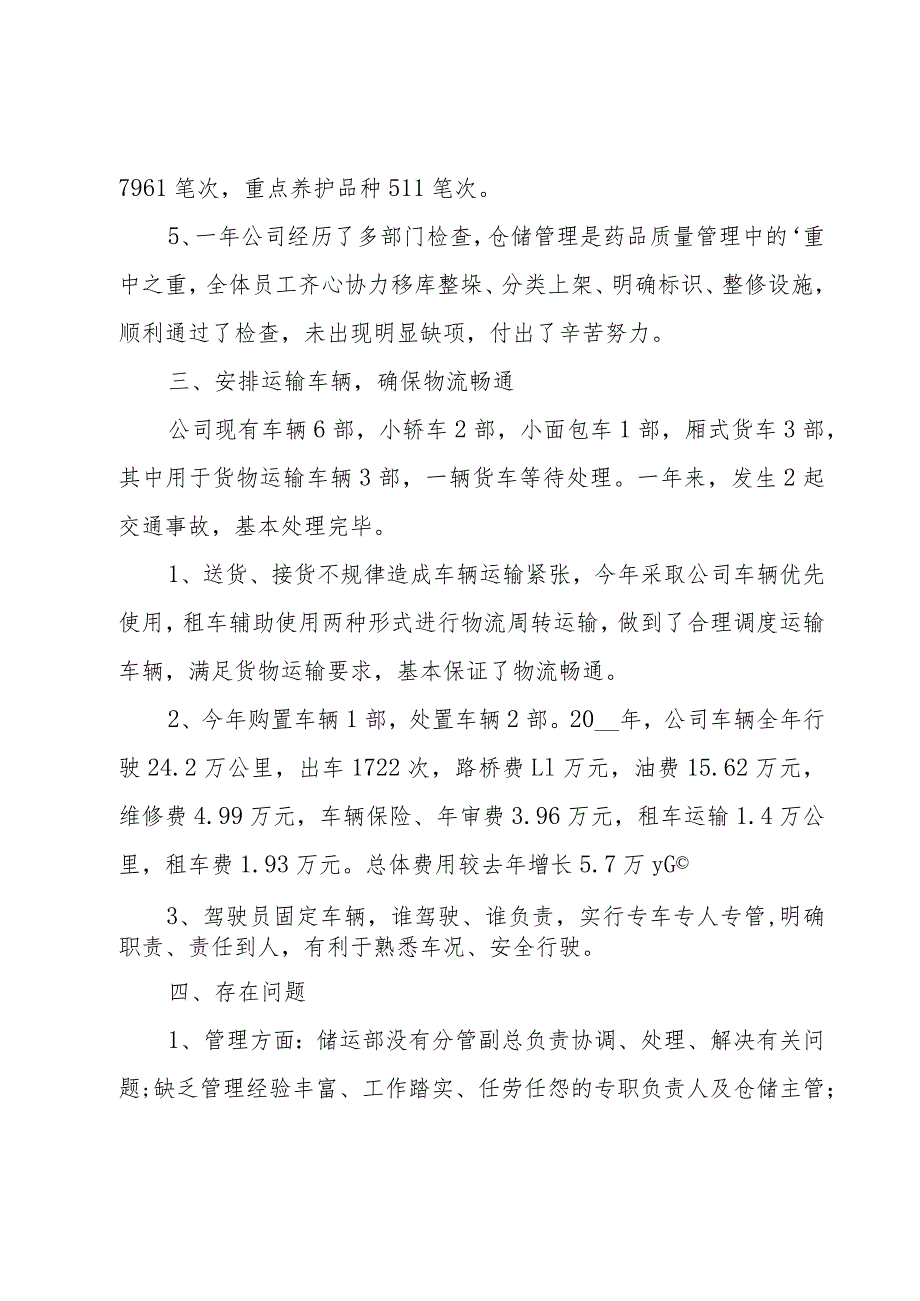 7961笔次，重点养护品种511笔次。
5、一年公司经历了多部门检查，仓储管理是药品质量管理中的‘重
中之重，全体员工齐心协力移库整垛、分类上架、明确标识、整修设施，
顺利通过了检查，未出现明显缺项，付出了辛苦努力。
三、安排运输车辆，确保物流畅通
公司现有车辆6部，小轿车2部，小面包车1部，厢式货车3部，
其中用于货物运输车辆3部，一辆货车等待处理。一年来，发生2起
交通事故，基本处理完毕。
1、送货、接货不规律造成车辆运输紧张，今年采取公司车辆优先
使用，租车辅助使用两种形式进行物流周转运输，做到了合理调度运输
车辆，满足货物运输要求，基本保证了物流畅通。
2、今年购置车辆1部，处置车辆2部。20__年，公司车辆全年行
驶24.2万公里，出车1722次，路桥费Ll万元，油费15.62万元，
维修费4.99万元，车辆保险、年审费3.96万元，租车运输1.4万公
里，租车费1.93万元。总体费用较去年增长5.7万yG©
3、驾驶员固定车辆，谁驾驶、谁负责，实行专车专人专管,明确
职责、责任到人，有利于熟悉车况、安全行驶。
四、存在问题
1、管理方面：储运部没有分管副总负责协调、处理、解决有关问
题;缺乏管理经验丰富、工作踏实、任劳任怨的专职负责人及仓储主管；